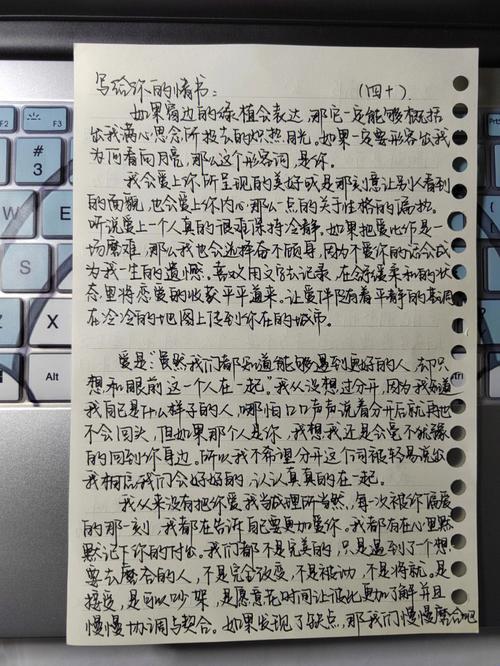 写给你的情书：（四十）
如果窗边的绿植会表达，那它一定能够概括
出我满心思念所投去的炽热目光。如果一定要形容出我
为何看向月亮，那么这个形容词，是你。
我会爱上你所呈现的美好或是刻意让别人看到
的面貌，也会爱上你内心那么一点的关于性格的偏执。
听说爱上一个人真的很难保持冷静，如果把爱比作是一
场磨难，那么我也会选择奋不顾身，因为不爱你的话会成
为我一生的遗憾。喜欢用文字去记录，在舒缓柔和的状
态里将恋爱的收获平平道来。让爱伴随着平静的基调
在冷冷的地图上传到你在的城市。
爱是："虽然我们都知道能够遇到更好的人，却只
想和眼前这一个人在一起。"我从没想过分开，因为我知道
我自己是什么样子的人，哪怕口口声声说着分开后就再也
不会回头，但如果那个人是你，我想我还是会毫不犹豫
的回到你身边。所以我不希望分开这个词被轻易说出
我相信我们会好好的，认认真真的在一起。
我从来没有把你爱我当成理所当然，每一次被你偏爱
的那一刻，我都在告诉自己要更加爱你。我都有在心里默
默记下你的付出。我们都不是完美的，只是遇到了个想
要去磨合的人，不是完全改变，不是被动，不是将就。是
接受，是可以吵架，是愿意花时间让彼此更加了解并且
慢慢协调与契合。如果发现了缺点，那我们慢慢磨合吧
F2
F3
#
3
Alt
Ctrl